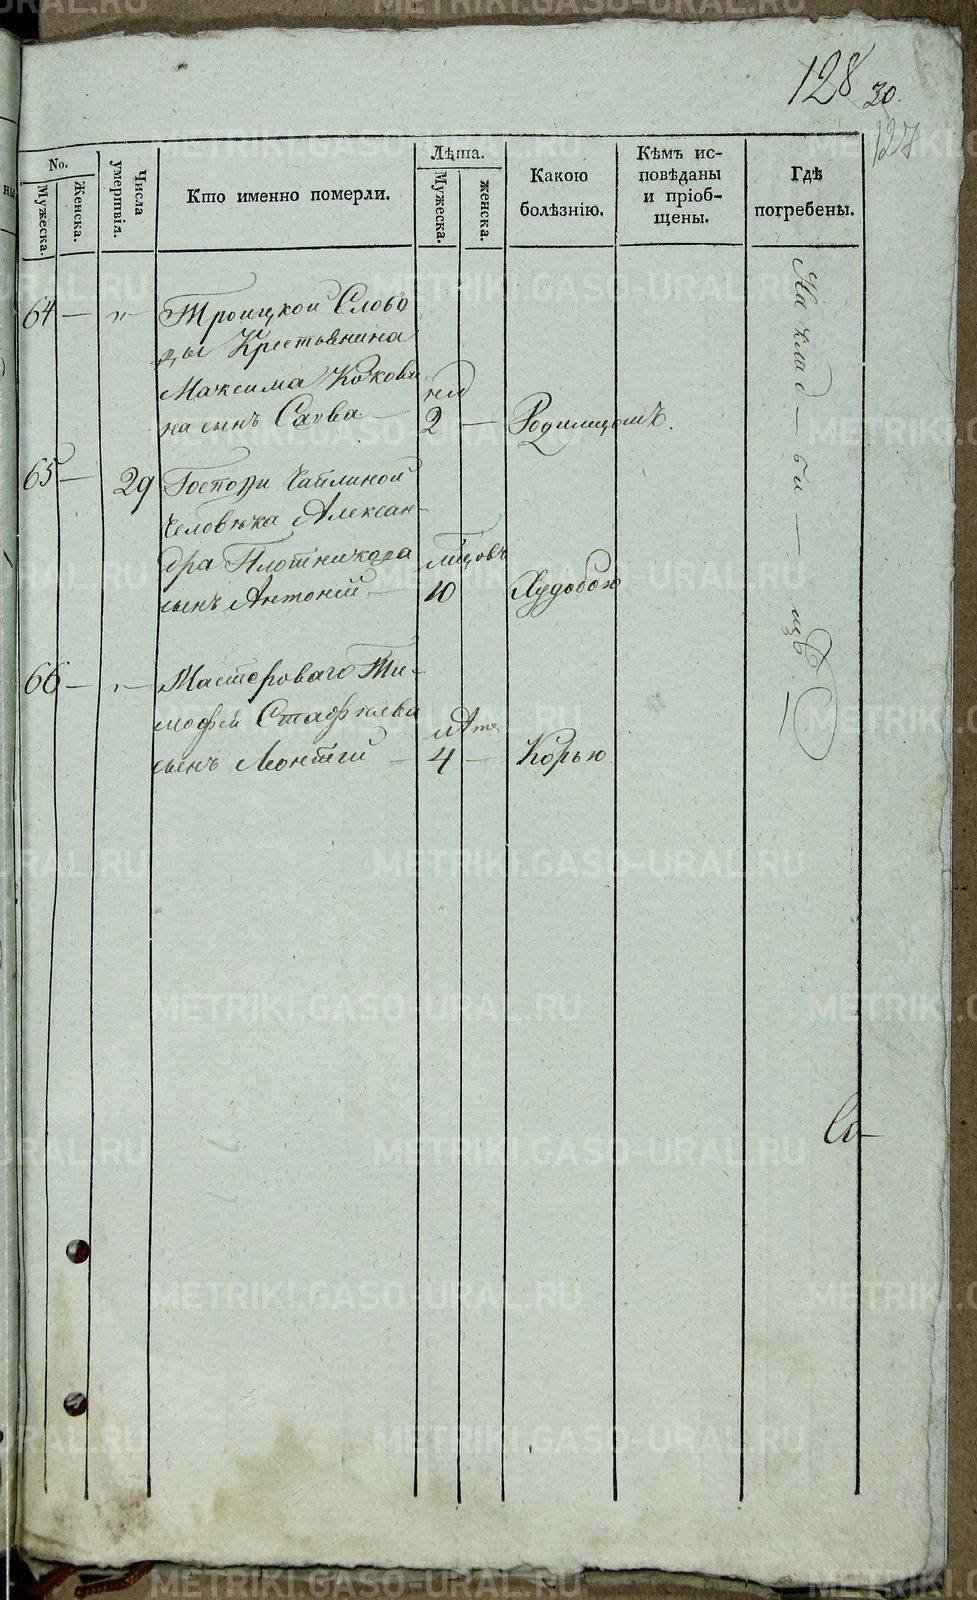 128
30.
127
No.
Мужеска.
Женска.
Числа умертвія.
Кто именно померли.
Лѣта.
Мужеска.
женска.
Какою болѣзнію.
Кѣмъ ис-
повѣданы
и пріоб-
щены.
Гдѣ
погребены.
64 — „ — Троицкой Слобо
ды Крестьянина
Максима Кокови нед
на сынъ Савва — 2 — Родимцомъ.
65 — 29 Госпожи
Человѣка Алексан-
дра Плотникова
сынъ Антоній — 10 Худобою
66 — „ — Мастероваго Ти-
мофея
сынъ — 4 — Корью
На клад — би —
METRIKI.GASO-URAL.RU